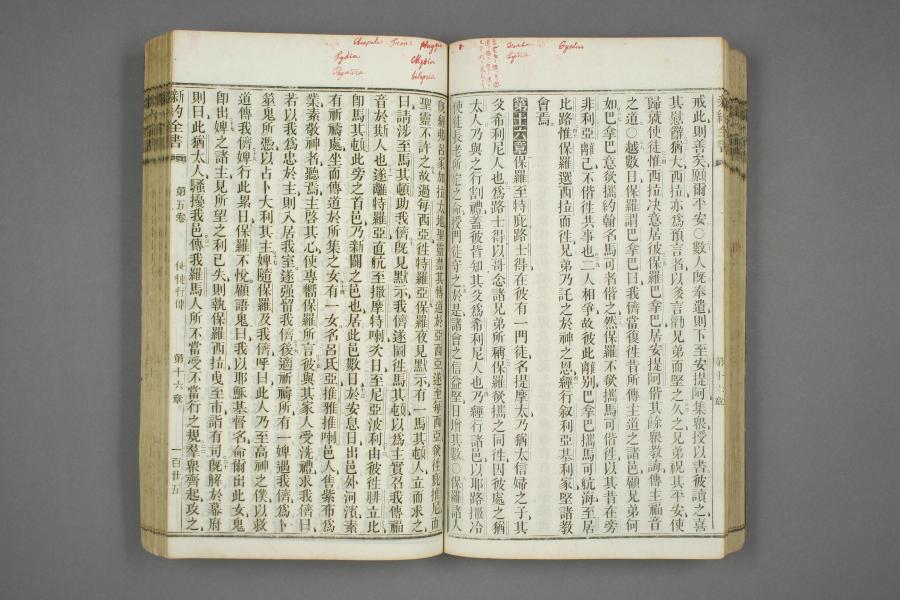 戒此則善矣願爾平安○數人旣奉遣則下至安提阿集衆授以書彼讀之喜
其慰藉猶大西拉亦爲預言者以多言勸兄弟而堅之久之兄弟祝其平安使
歸就使徒惟西拉决意居彼保羅巴拿巴居安提阿偕其餘衆敎誨傳主福音
之道○越數日保羅謂巴拿巴曰我儕當復往昔所傳主道之諸邑顧兄弟何
如巴拿巴意欲攜約翰名馬可者偕之然保羅不欲攜馬可偕往以其昔在旁
非利亞離己不偕往共事也二人相爭故彼此離别巴拿巴攜馬可航海至居
比路惟保羅選西拉而往兄弟乃託之於神之恩經行叙利亞基利家堅諸敎
會焉
第十六章 保羅至特庇路士得在彼有一門徒名提摩太乃猶太信婦之子其
父希利尼人也爲路士得以哥念諸兄弟所稱保羅欲攜之同往因彼處之猶
太人乃與之行割禮蓋彼皆知其父爲希利尼人也乃經行諸邑以耶路撒冷
使徒長老所定之命授門徒守之於是諸會之信益堅日增其數○保羅諸人
聖靈不許之故過每西亞往特羅亞保羅夜見默示有一馬其頓人立而求之
曰請涉至馬其頓助我儕旣見默示我儕遂圖往馬其頓以爲主實召我傳福
音於斯人也遂離特羅亞直航至撒摩特喇次日至尼亞波利由彼往腓立比
卽馬其頓此旁之首邑乃新闢之邑也居此邑數日於安息日出邑外河濱素
有祈禱處坐而傳道於所集之女有一女名呂氏亞推雅推喇邑人售紫布爲
業素敬神者聽焉主啓其心使專嚮保羅所言彼與其家人受洗禮求我儕曰
若以我爲忠於主則入居我室遂强留我儕後適祈禱所有一婢遇我儕爲卜
筮鬼所憑以占卜大利其主婢隨保羅及我儕呼曰此人乃至高神之僕以救
道傳我儕婢行此累日保羅不悅顧語鬼曰我以耶穌基督名命爾出此女鬼
卽出婢之諸主見所望之利已失則執保羅西拉曳至市詣有司旣解於幕府
則曰此猶太人騷擾我邑傳我羅馬人所不當受不當行之規羣衆齊起攻之
新約全書
第五卷
使徒行傳
第十六章
一百廿五
Lydia